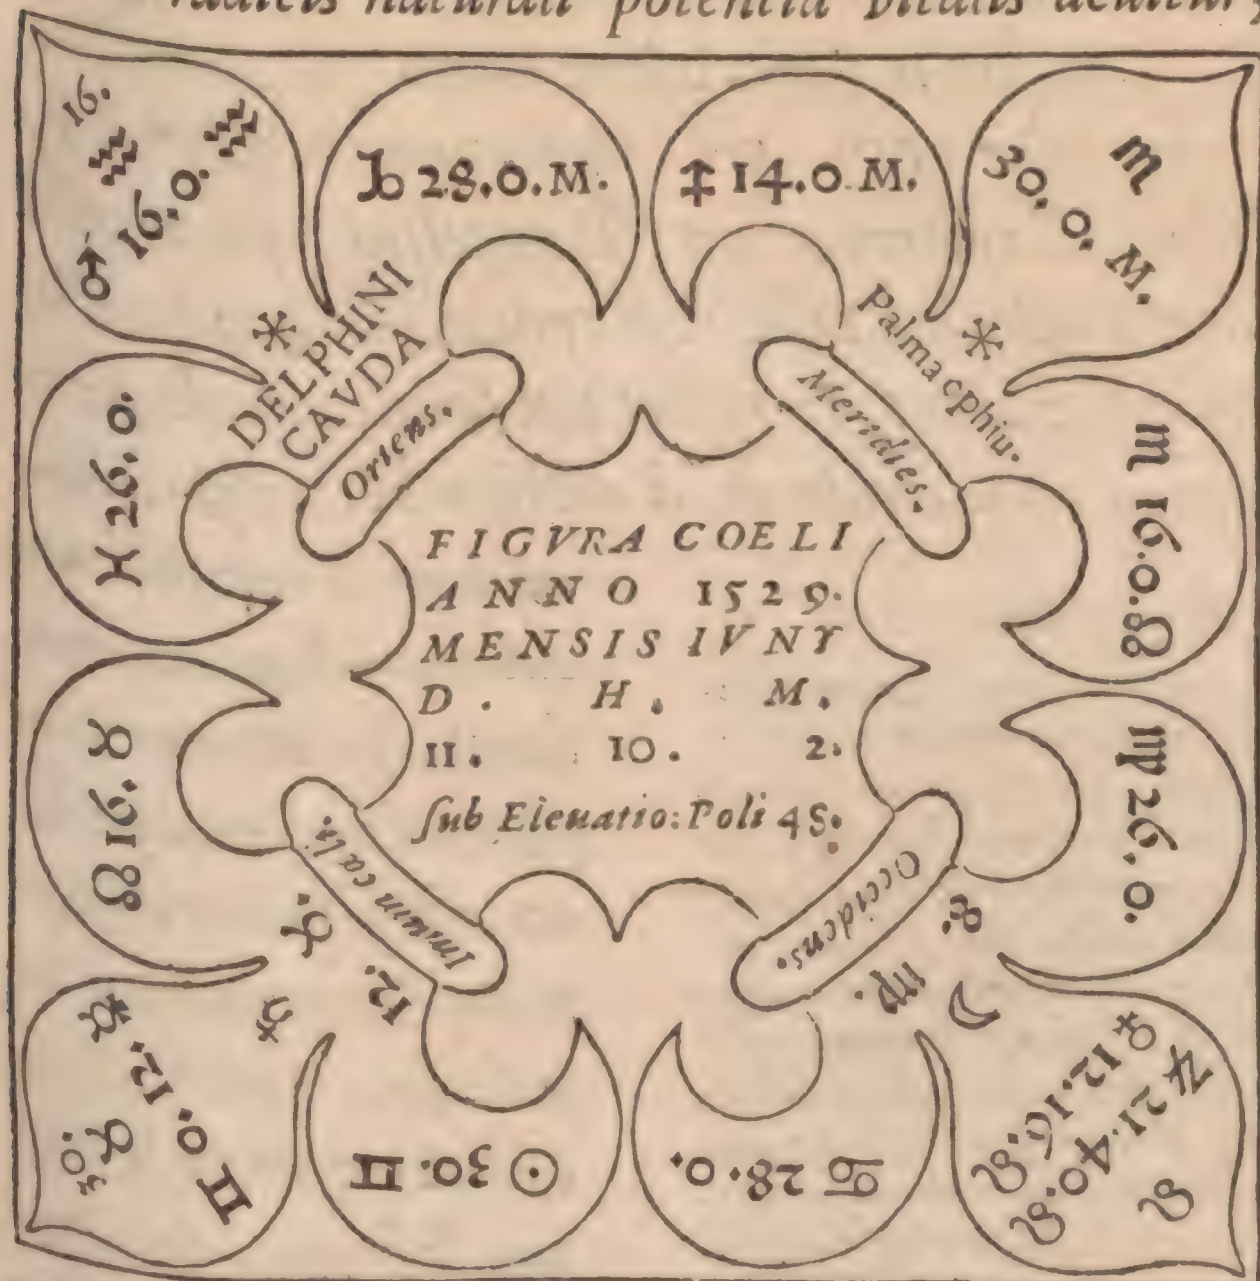 radicis naturali potentia vitalis
16. ♒
♂ 16. 0. ♒
♑ 28. 0. M.
♐ 14. 0. M.
♏
30. 0. M.
* DELPHINI
CAVDA
Ortens.
Palma cphiu. *
Meridies.
♓ 26. 0.
♏ 16. 0. ☋
FIGVRA COELI
ANNO 1529.
MENSIS IVNY
D. H. M.
11. 10. 2.
ſub Eleuatio: Poli 45.
☊ 16. ♉
♍ 26. 0.
Imum cæli.
♄ 12. ♉.
Occidens.
☽ ♍. 8.
☿ 12. 0. ♊
30. ♉
☉ 30. ♊
♋ 28. 0.
♀ 12. 16. ♌
♃ 21. 40. ♌
♌